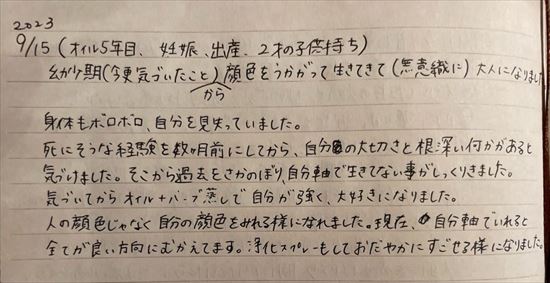 2023
9/15(オイル5年目、妊娠、出産、2才の子供持ち)
幼少期(今更気づいたこと)から顔色をうかがって生きてきて(無意識に)大人になりました
身体もボロボロ、自分を見失っていました。
死にそうな経験を数ヶ月前にしてから、自分の大切さと根深い何かがあると
気づけました。そこから過去をさかのぼり、自分軸で生きてない事がしっくりきました。
気づいてからオイル+ハーブ蒸しで自分が強く、大好きになりました。
人の顔色じゃなく自分の顔色をみれる様になれました。現在、自分軸でいれると
全てが良い方向にむかえてます。浄化スプレーもしておだやかにすごせる様になりました。